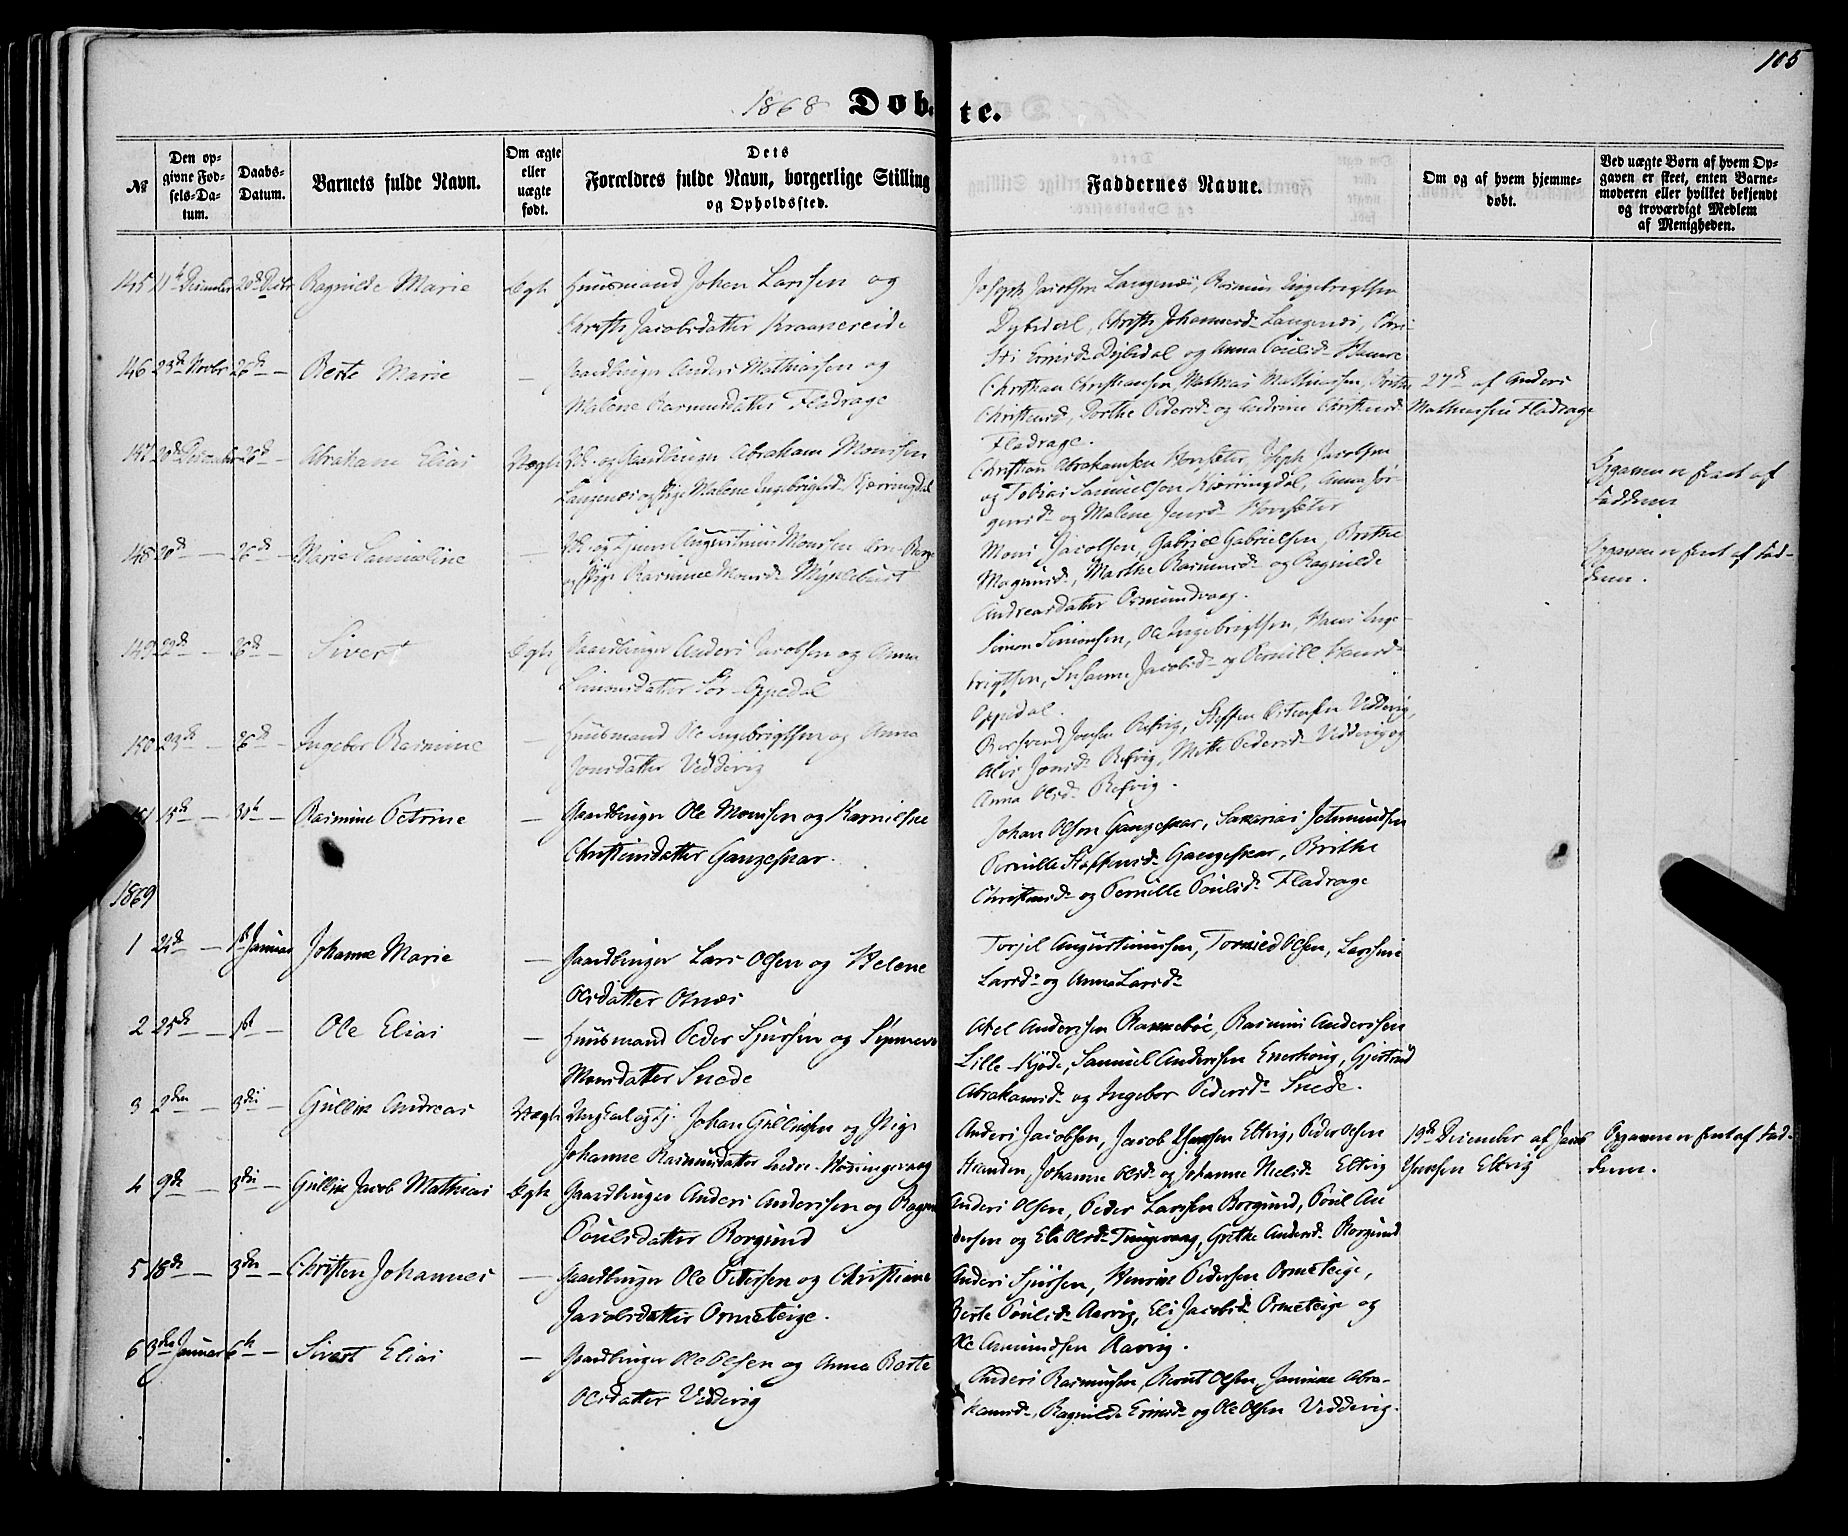 105
1868 Døb- te.
№
Den opgivne Fødsels-Datum.
Daabs-Datum.
Barnets fulde Navn.
Om ægte eller uægte født.
Dets Forældres fulde Navn, borgerlige Stilling og Opholdssted.
Faddernes Navne.
Om og af hvem hjemmedøbt.
Ved uægte Børn af hvem Opgaven er skeet, enten Barnemoderen eller hvilket bekjendt og troværdigt Medlem af Menigheden.
145 11te December 26de Decbr Ragnilde Marie Ægte Huusmand Johan Larssen og
Christi Jacobsdatter Kraanereide
Joseph Jacobsen Langenæs, Rasmus Ingebrigtsen
Dybedal, Christi Johannesd. Langenæs, Chri-
sti Ericsd. Dybedal og Anna Poulsd. Hamre
146 23de Novbr 26de — Berte Marie — Gaardbruger Anders Mathiassen og
Malene Rasmusdatter Fladrage
Christian Christiansen, Mathias Mathiassen, Brithe
Christensd., Dorthe Pedersd. og Andrine Christensd.
Fladrage.
27de af Anders
Mathiassen Fladrage
147 20de December 26de Abraham Elias Uægte Gaardbruger Abraham Monssen
Langenæs og Pige Malene Ingebrigtsd. Kjerringdal
Christian Abrahamsen Honsæter, Joseph Jacobsen
og Tobias Samuelsen Kjerringdal, Anna Jør-
gensd. og Malene Jensd. Honsæter
Opgaven er skeet af
Fadderne
148 20de — 26de — Marie Samueline — Augustinus Monssen
og Pige Rasmine Monsd. Myklebust
Mons Jacobsen, Gabriel Gabrielsen, Brithe
Magnusd., Marthe Rasmusd. og Ragnilde
Andreasdatter Osmundvaag.
Opgaven er skeet af Fad-
derne.
149 29de — 26de — Sivert Ægte Gaardbruger Anders Jacobsen og Anna
Simonsdatter Sør-Oppedal
Simon Simonsen, Ole Ingebrigtsen, Hans Inge-
brigtsen, Susanne Jacobsd. og Pernille Hansd.
Oppedal.
150 29de — 26de — Ingebor Rasmine — Huusmand Ole Ingebrigtsen og Anna
Jonsdatter Veddevig
Jonsen Refvig, Steffen Veddevig,
Jonsd. Refvig, Mette Pedersd. Veddevig og
Anna Olsd. Refvig.
151 15de — 30te — Rasmine Petrine — Gaardbruger Ole Monssen og Karnilsne
Christensdatter Gangeskar.
Johan Olsen Gangeskar, Sakarias Jetmundsen
Pernille Steffensd. Gangeskar, Brithe
Christensd. og Pernille Poulsd. Fladrage
1869
1 24de — 1ste Januar Johanne Marie — Gaardbruger Lars Olsen og Helene
Olsdatter Osnæs
Torjel Augustinussen, Tormod Olsen, Larsine
Larsd. og Anna Larsd.
2 25de — 1ste — Ole Elias — Huusmand Peder Sjursen og Synneve
Monsdatter Snede
Abel Anderssen Rannebøe, Rasmus Anderssen
Lille-Kjøde, Samuel Anderssen Enerhoug, Gjertrud
Abrahamsd. og Ingebor Pedersd. Snede.
3 2den — 3die Gullik Andreas Uægte Ungkarl og Johan Gulliksen og Pige
Johanne Rasmusdatter Indre-
Anders Jacobsen, Jacob Hanssen Eltvig, Peder Olsen
Stranden, Johanne Olsd. og Johanne Nielsd. Eltvig
19de December af Jacob
Hanssen Eltvig
Opgaven er skeet af Fad-
derne.
4 9de — 3die Gullik Jacob Mathias Ægte Gaardbruger Anders Anderssen og Ragn
Poulsdatter Borgund
Anders Olsen, Peder Larssen Borgund, Poul An-
dersen og Eli Olsd. Tungevaag, Grethe Andersd. Borgund
5 18de — 3die — Christen Johannes — Gaardbruger Ole Pettersen og Christiane
Jacobsdatter Ormeteige.
Anders Sjursen, Henrik Pedersen Ormeteige,
Berte Poulsd. Aarvig, Eli Jacobsd. Ormeteige og
Ole Asmundsen Aarvig.
6 3die Januar 6te — Sivert Elias — Gaardbruger Ole Olsen og Anna Berte
Olsdatter Veddevig
Anders Rasmussen, Bernt Olsen, Janikke Abra-
hamsd., Ragnilde Ericsd. og Ole Olsen Veddevig.